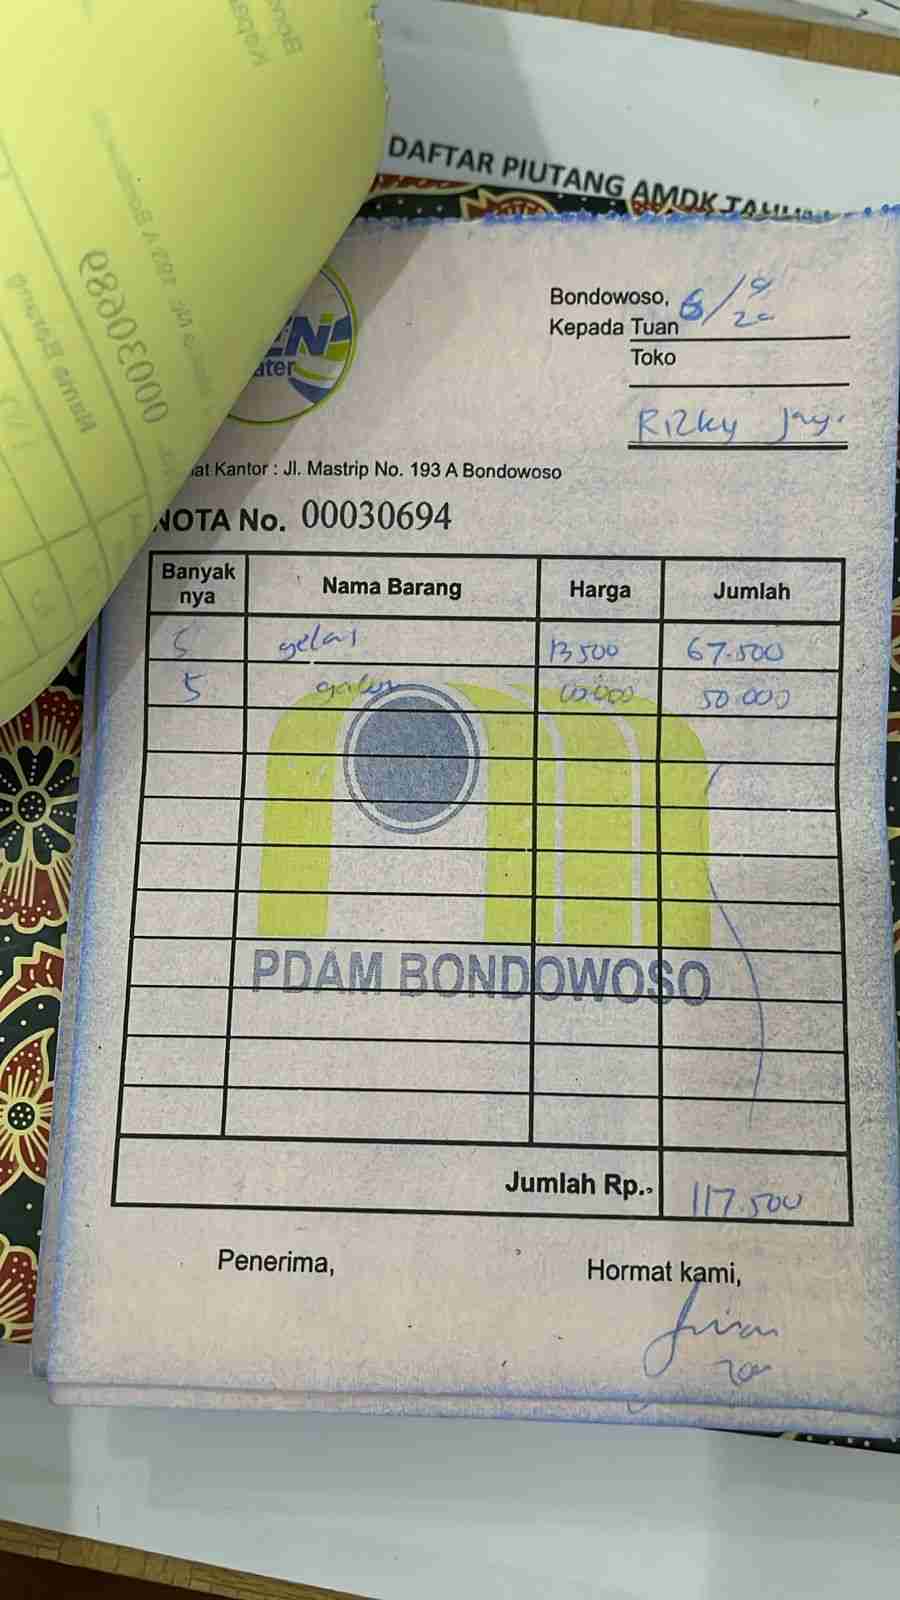 DAFTAR PIUTANG AMDK
00030689
Bondowoso, 6/9 20
Kepada Tuan
Toko
Rizky Jay.
at Kantor : Jl. Mastrip No. 193 A Bondowoso
NOTA No. 00030694
Banyak nya Nama Barang Harga Jumlah
5 gelas 13500 67.500
5 galon 10.000 50.000
PDAM BONDOWOSO
Jumlah Rp. 117.500
Penerima, Hormat kami,